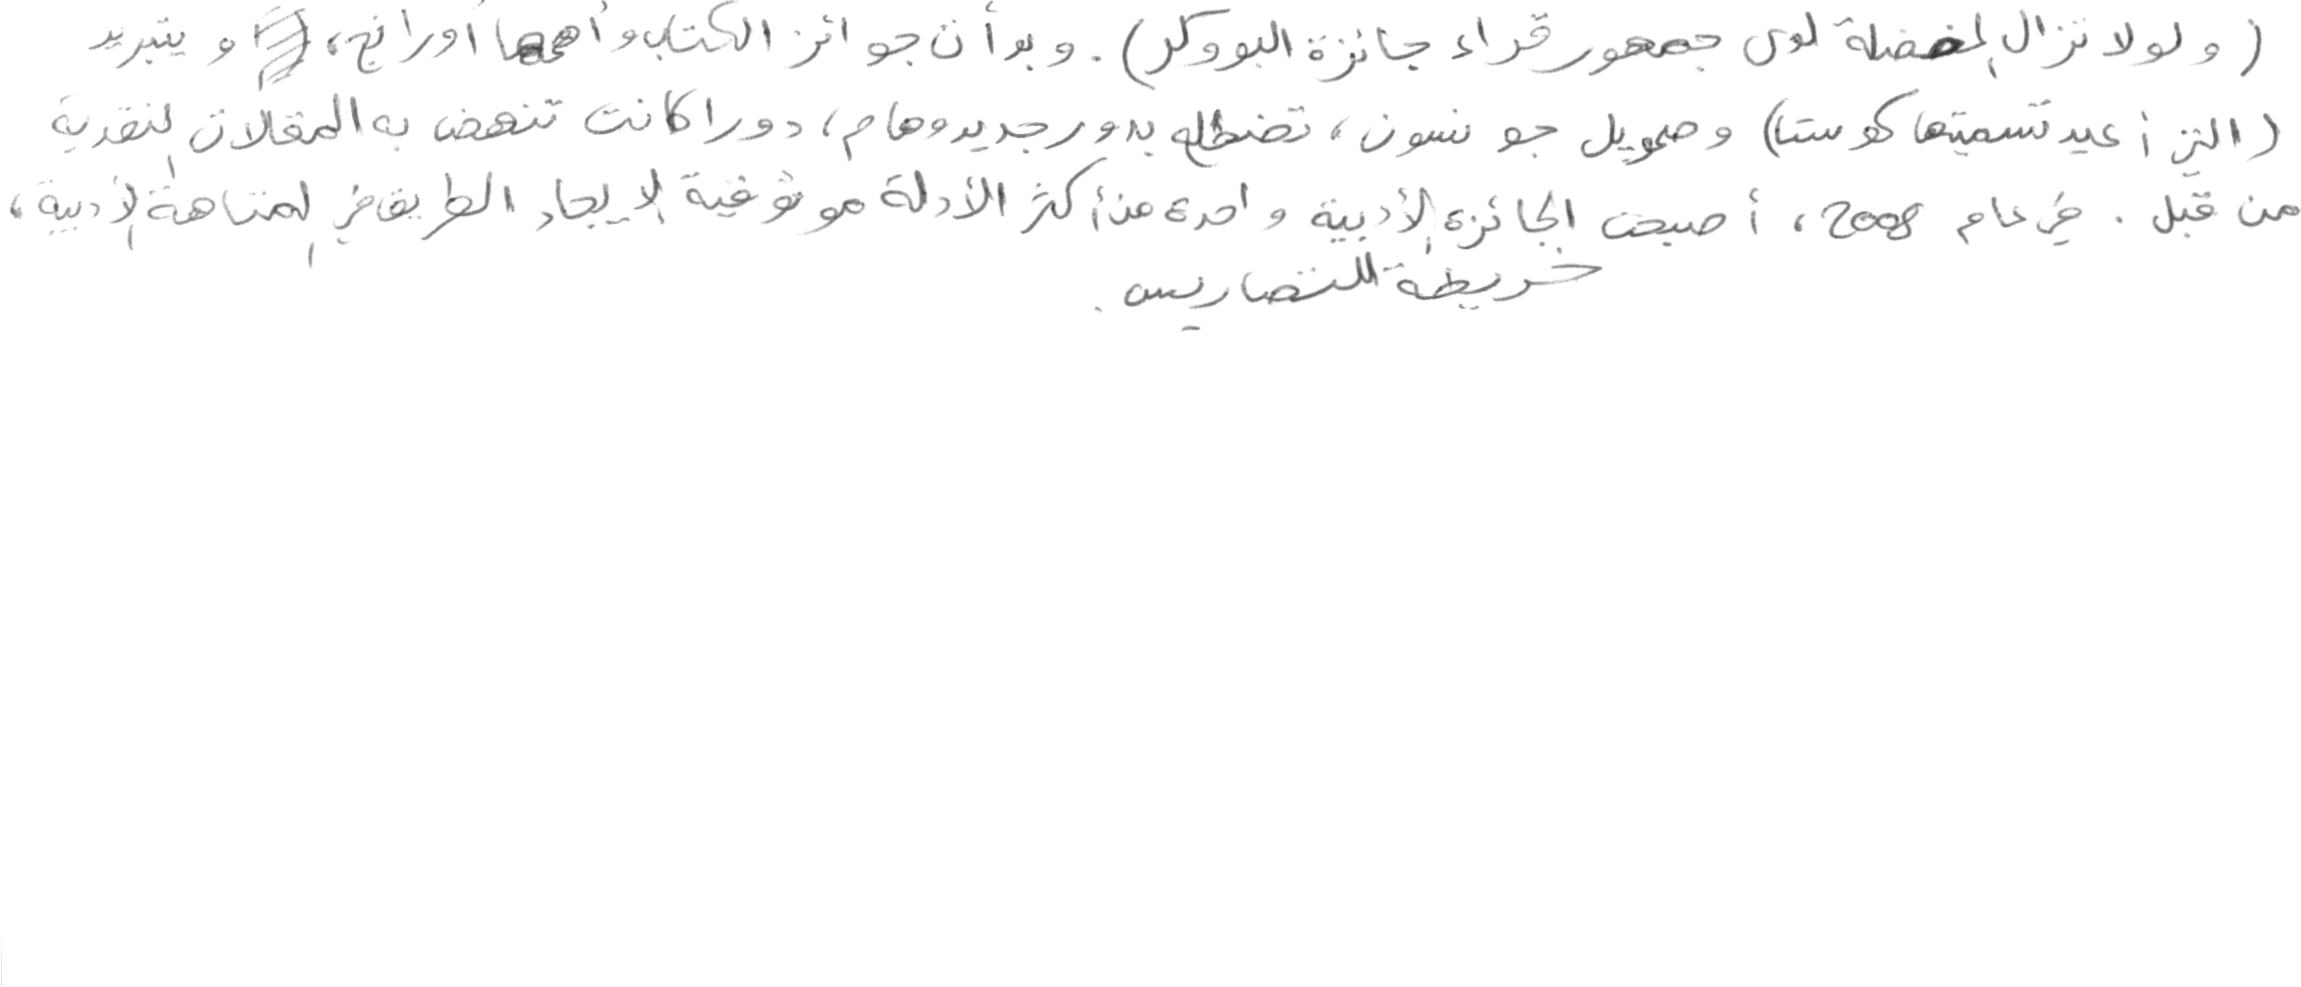 ( ولولا تزال المفضلة لدى جمهور قراء جائزة البووكر) . وبدأت جوائز الكتاب وأهمها أورانج، و يتبريد
( التي أعيد تسميتها كوستا) وصمويل جونسون ، تضطلع بدور جديد وهام، دورا كانت تنهض به المقالات النقدية
من قبل . في عام 2008 ، أصبحت الجائزة الأدبية واحدة من أكثر الأدلة موثوقية لإيجاد الطريق في المتاهة الأدبية ،
خريطة للتضاريس .